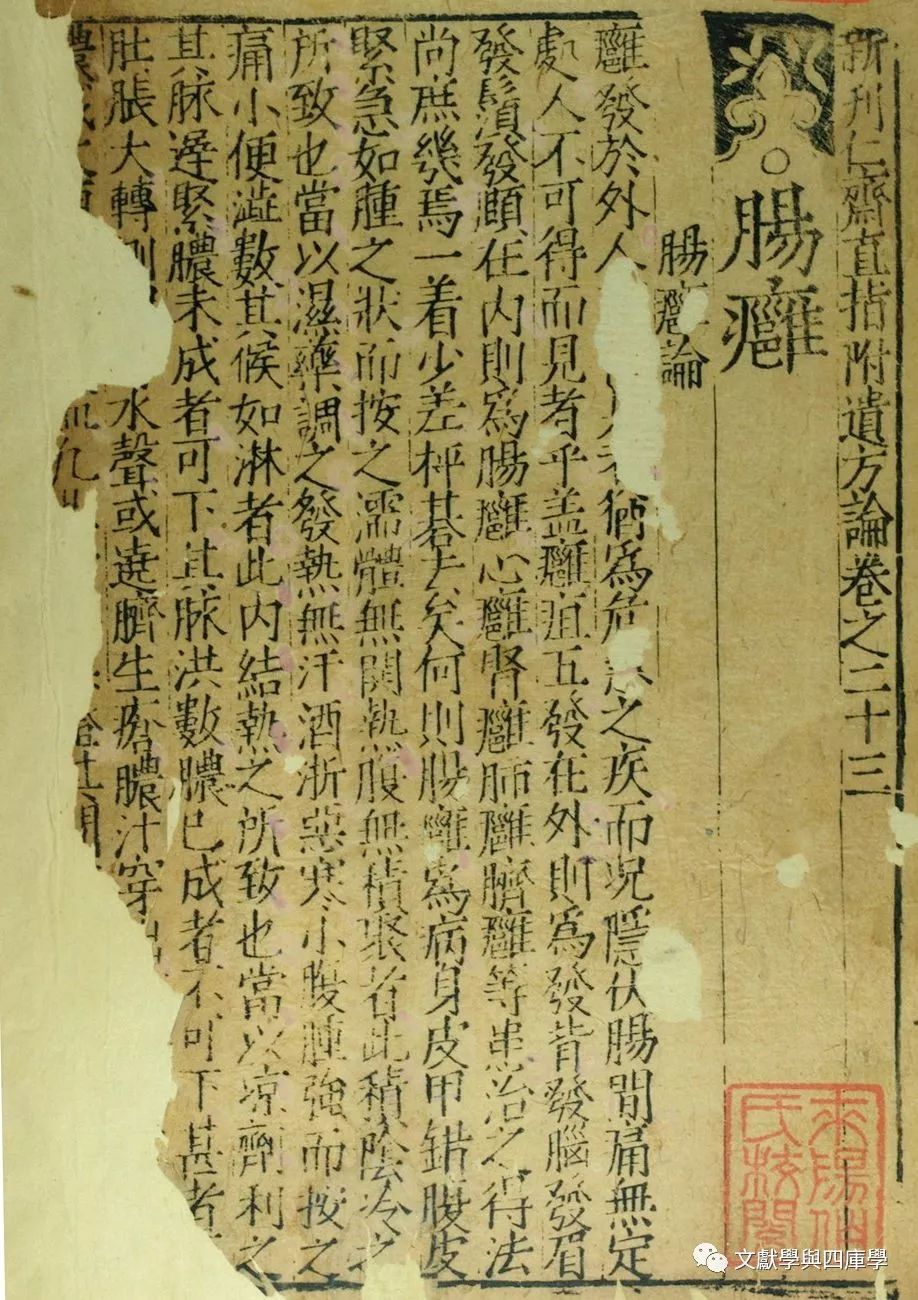 新刊仁齋直指附遺方論卷之二十三
腸癰
腸癰論
癰發於外人猶爲危之疾而况隱伏腸間痛無定
處人不可得而見者乎盖癰疽五發在外則爲發背發腦發眉
發鬚發頤在内則爲腸癰心癰腎癰肺癰臍癰等患治之得法
尚庶幾焉一着少差枰碁去矣何則腸癰爲病身皮甲錯腹皮
緊急如腫之狀而按之濡體無關熱腹無積聚者此積陰冷之
所致也當以濕藥調之發熱無汗洒浙惡寒小腹腫強而按之
痛小便澁數其候如淋者此内結熱之所致也當以凉劑利之
其脉遟緊膿未成者可下其脉洪數膿已成者不可下甚者
肚脹大轉側水聲或遶臍生瘡膿汁穿出
文獻學與四庫學